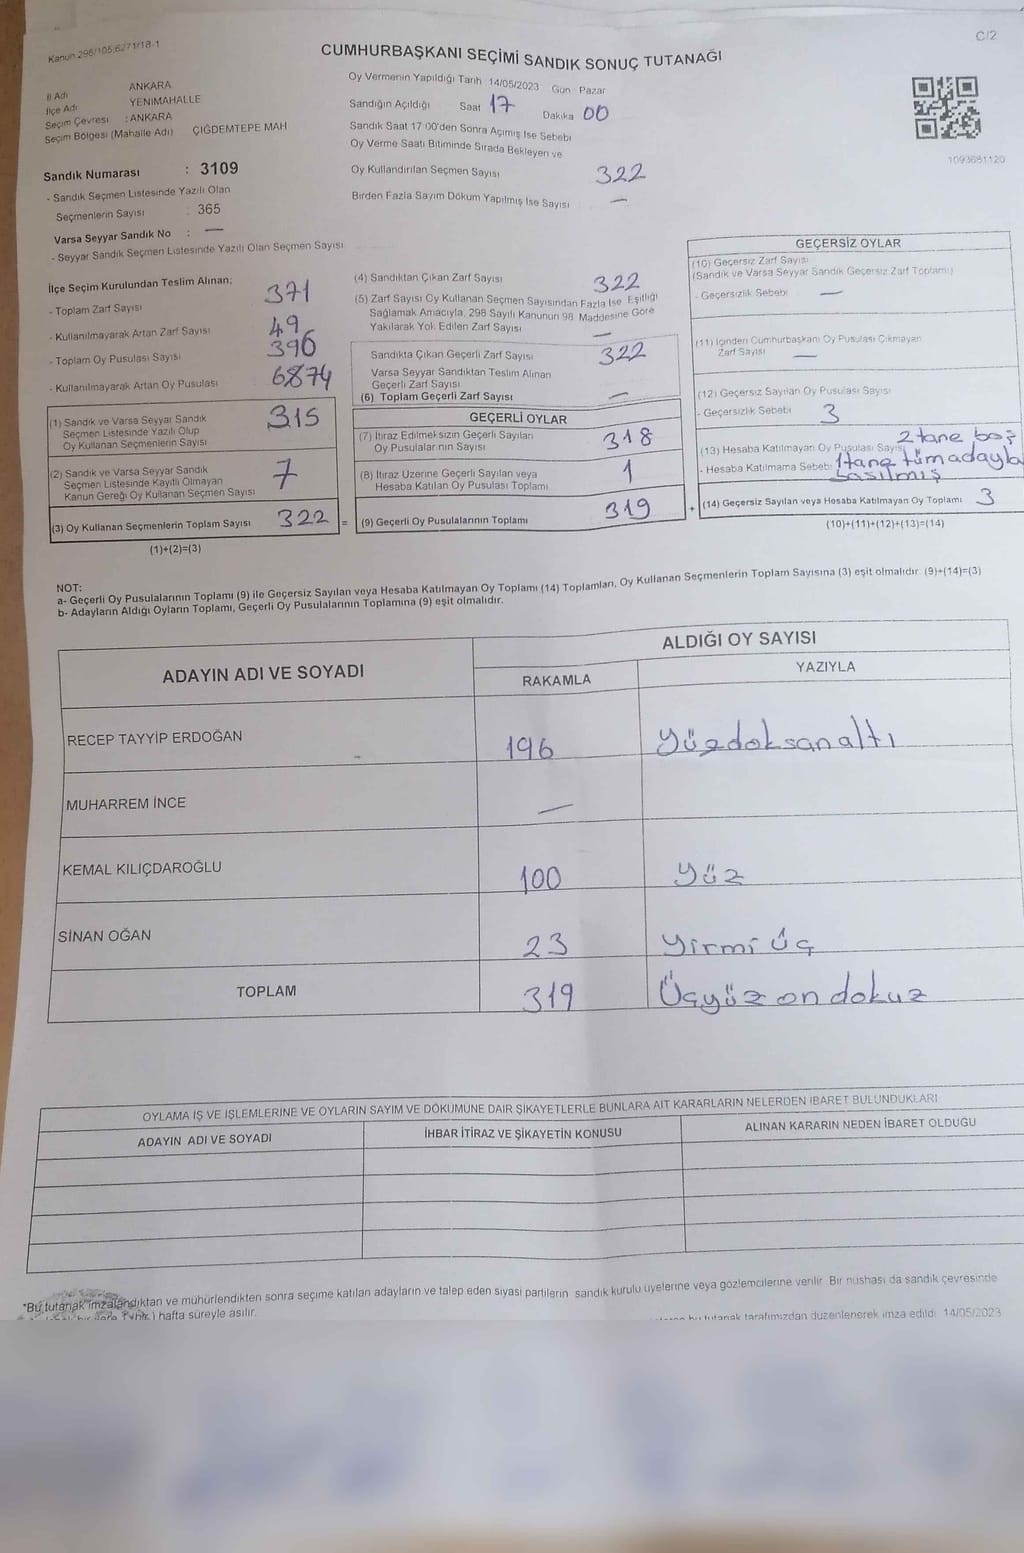 Kanun 298/105,6271/18-1
C/2
CUMHURBAŞKANI SEÇİMİ SANDIK SONUÇ TUTANAĞI
İl Adı ANKARA
İlçe Adı YENİMAHALLE
Seçim Çevresi : ANKARA
Seçim Bölgesi (Mahalle Adı) ÇİĞDEMTEPE MAH
Sandık Numarası : 3109
- Sandık Seçmen Listesinde Yazılı Olan
Seçmenlerin Sayısı : 365
Varsa Seyyar Sandık No : —
- Seyyar Sandık Seçmen Listesinde Yazılı Olan Seçmen Sayısı
Oy Vermenin Yapıldığı Tarih 14/05/2023 Gün Pazar
Sandığın Açıldığı Saat 17 Dakika 00
Sandık Saat 17 00'den Sonra Açımış İse Sebebi
Oy Verme Saati Bitiminde Sırada Bekleyen ve
Oy Kullandırılan Seçmen Sayısı 322
Birden Fazla Sayım Döküm Yapılmış İse Sayısı —
1093681120
İlçe Seçim Kurulundan Teslim Alınan;
- Toplam Zarf Sayısı 371
- Kullanılmayarak Artan Zarf Sayısı 49
- Toplam Oy Pusulası Sayısı 396
- Kullanılmayarak Artan Oy Pusulası 6874
(1) Sandık ve Varsa Seyyar Sandık
Seçmen Listesinde Yazılı Olup
Oy Kullanan Seçmenlerin Sayısı 315
(2) Sandık ve Varsa Seyyar Sandık
Seçmen Listesinde Kayıtlı Olmayan
Kanun Gereği Oy Kullanan Seçmen Sayısı 7
(3) Oy Kullanan Seçmenlerin Toplam Sayısı 322 =
(1)+(2)=(3)
(4) Sandıktan Çıkan Zarf Sayısı 322
(5) Zarf Sayısı Oy Kullanan Seçmen Sayısından Fazla İse, Eşitliği
Sağlamak Amacıyla, 298 Sayılı Kanunun 98 Maddesine Göre
Yakılarak Yok Edilen Zarf Sayısı —
Sandıkta Çıkan Geçerli Zarf Sayısı 322
Varsa Seyyar Sandıktan Teslim Alınan
Geçerli Zarf Sayısı —
(6) Toplam Geçerli Zarf Sayısı
GEÇERLİ OYLAR
(7) İtiraz Edilmeksizin Geçerli Sayılan
Oy Pusulalarının Sayısı 318
(8) İtiraz Üzerine Geçerli Sayılan veya
Hesaba Katılan Oy Pusulası Toplamı 1
(9) Geçerli Oy Pusulalarının Toplamı 319 +
GEÇERSİZ OYLAR
(10) Geçersiz Zarf Sayısı
(Sandık ve Varsa Seyyar Sandık Geçersiz Zarf Toplamı)
- Geçersizlik Sebebi —
(11) İçinden Cumhurbaşkanı Oy Pusulası Çıkmayan
Zarf Sayısı —
(12) Geçersiz Sayılan Oy Pusulası Sayısı
- Geçersizlik Sebebi 3
(13) Hesaba Katılmayan Oy Pusulası Sayısı 2 tane boş
- Hesaba Katılmama Sebebi 1 tane tüm adayla
basılmış
(14) Geçersiz Sayılan veya Hesaba Katılmayan Oy Toplamı 3
(10)+(11)+(12)+(13)=(14)
NOT:
a- Geçerli Oy Pusulalarının Toplamı (9) ile Geçersiz Sayılan veya Hesaba Katılmayan Oy Toplamı (14) Toplamları, Oy Kullanan Seçmenlerin Toplam Sayısına (3) eşit olmalıdır. (9)+(14)=(3)
b- Adayların Aldığı Oyların Toplamı, Geçerli Oy Pusulalarının Toplamına (9) eşit olmalıdır.
ADAYIN ADI VE SOYADI
ALDIĞI OY SAYISI
RAKAMLA YAZIYLA
RECEP TAYYİP ERDOĞAN 196 Yüzdoksanaltı
MUHARREM İNCE —
KEMAL KILIÇDAROĞLU 100 Yüz
SİNAN OĞAN 23 Yirmi üç
TOPLAM 319 Üçyüz on dokuz
OYLAMA İŞ VE İŞLEMLERİNE VE OYLARIN SAYIM VE DÖKÜMÜNE DAİR ŞİKAYETLERLE BUNLARA AİT KARARLARIN NELERDEN İBARET BULUNDUKLARI
ADAYIN ADI VE SOYADI İHBAR İTİRAZ VE ŞİKAYETİN KONUSU ALINAN KARARIN NEDEN İBARET OLDUĞU
*Bu tutanak imzalandıktan ve mühürlendikten sonra seçime katılan adayların ve talep eden siyasi partilerin sandık kurulu üyelerine veya gözlemcilerine verilir. Bir nüshası da sandık çevresinde
hafta süreyle asılır.
bu tutanak tarafımızdan düzenlenerek imza edildi. 14/05/2023